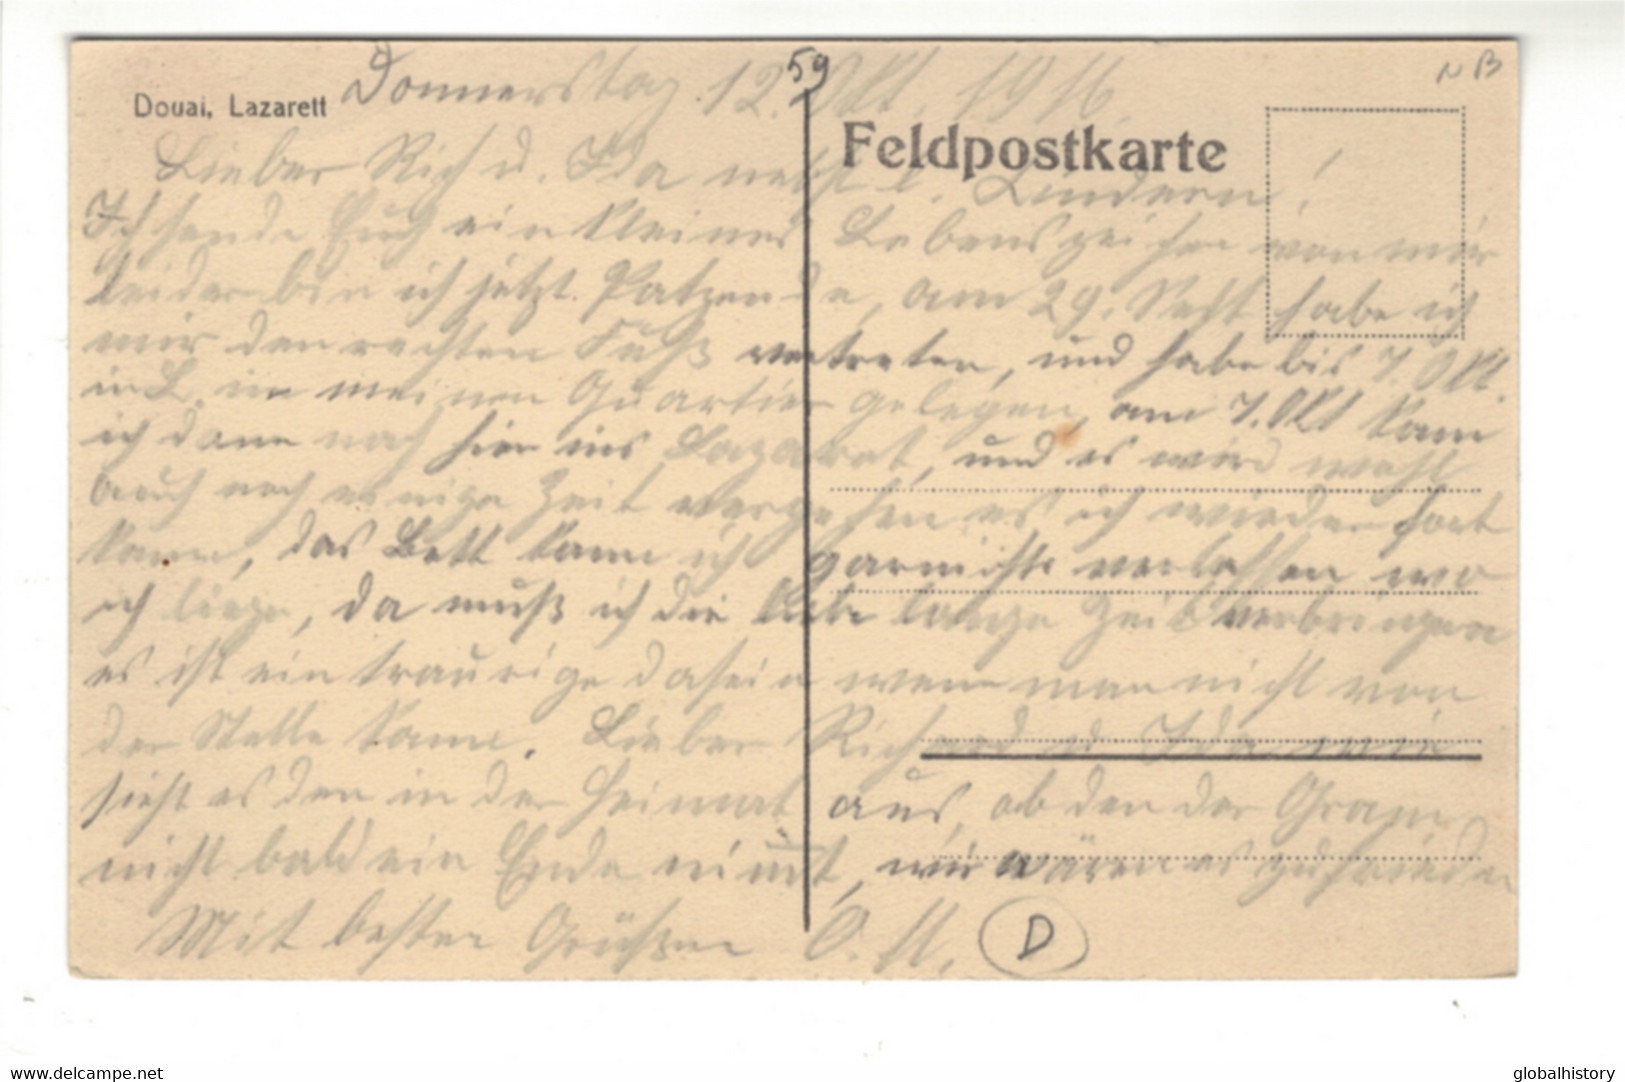 59
N B
Douai, Lazarett
Donnerstag 12. Okt. 1916.
Feldpostkarte
Lieber Rich u. Ida nebst l. Kindern!
Ich sende Euch ein kleines Lebenszeichen von mir
leider bin ich jetzt am 29. Sept habe ich
mir den rechten Fuß vertreten, und habe bis 7. Okt.
in L. in meinen Quartier gelegen, am 7. Okt kam
ich dann nach hier ins Lazaret, und es wird wohl
auch noch einige Zeit vergehen es ich wieder fort
kann, das Bett kann ich garnicht verlassen wo
ich liege, da muß ich die lange Zeit verbringen
es ist ein traurige dasein wenn man nicht von
der Stelle kann. Lieber Richard u Ida wie
sieht es den in der Heimat aus, ob den der
nicht bald ein Ende nimmt, wir wären es zufrieden
Mit besten Grüßen O. K.
D
www.delcampe.net
globalhistory